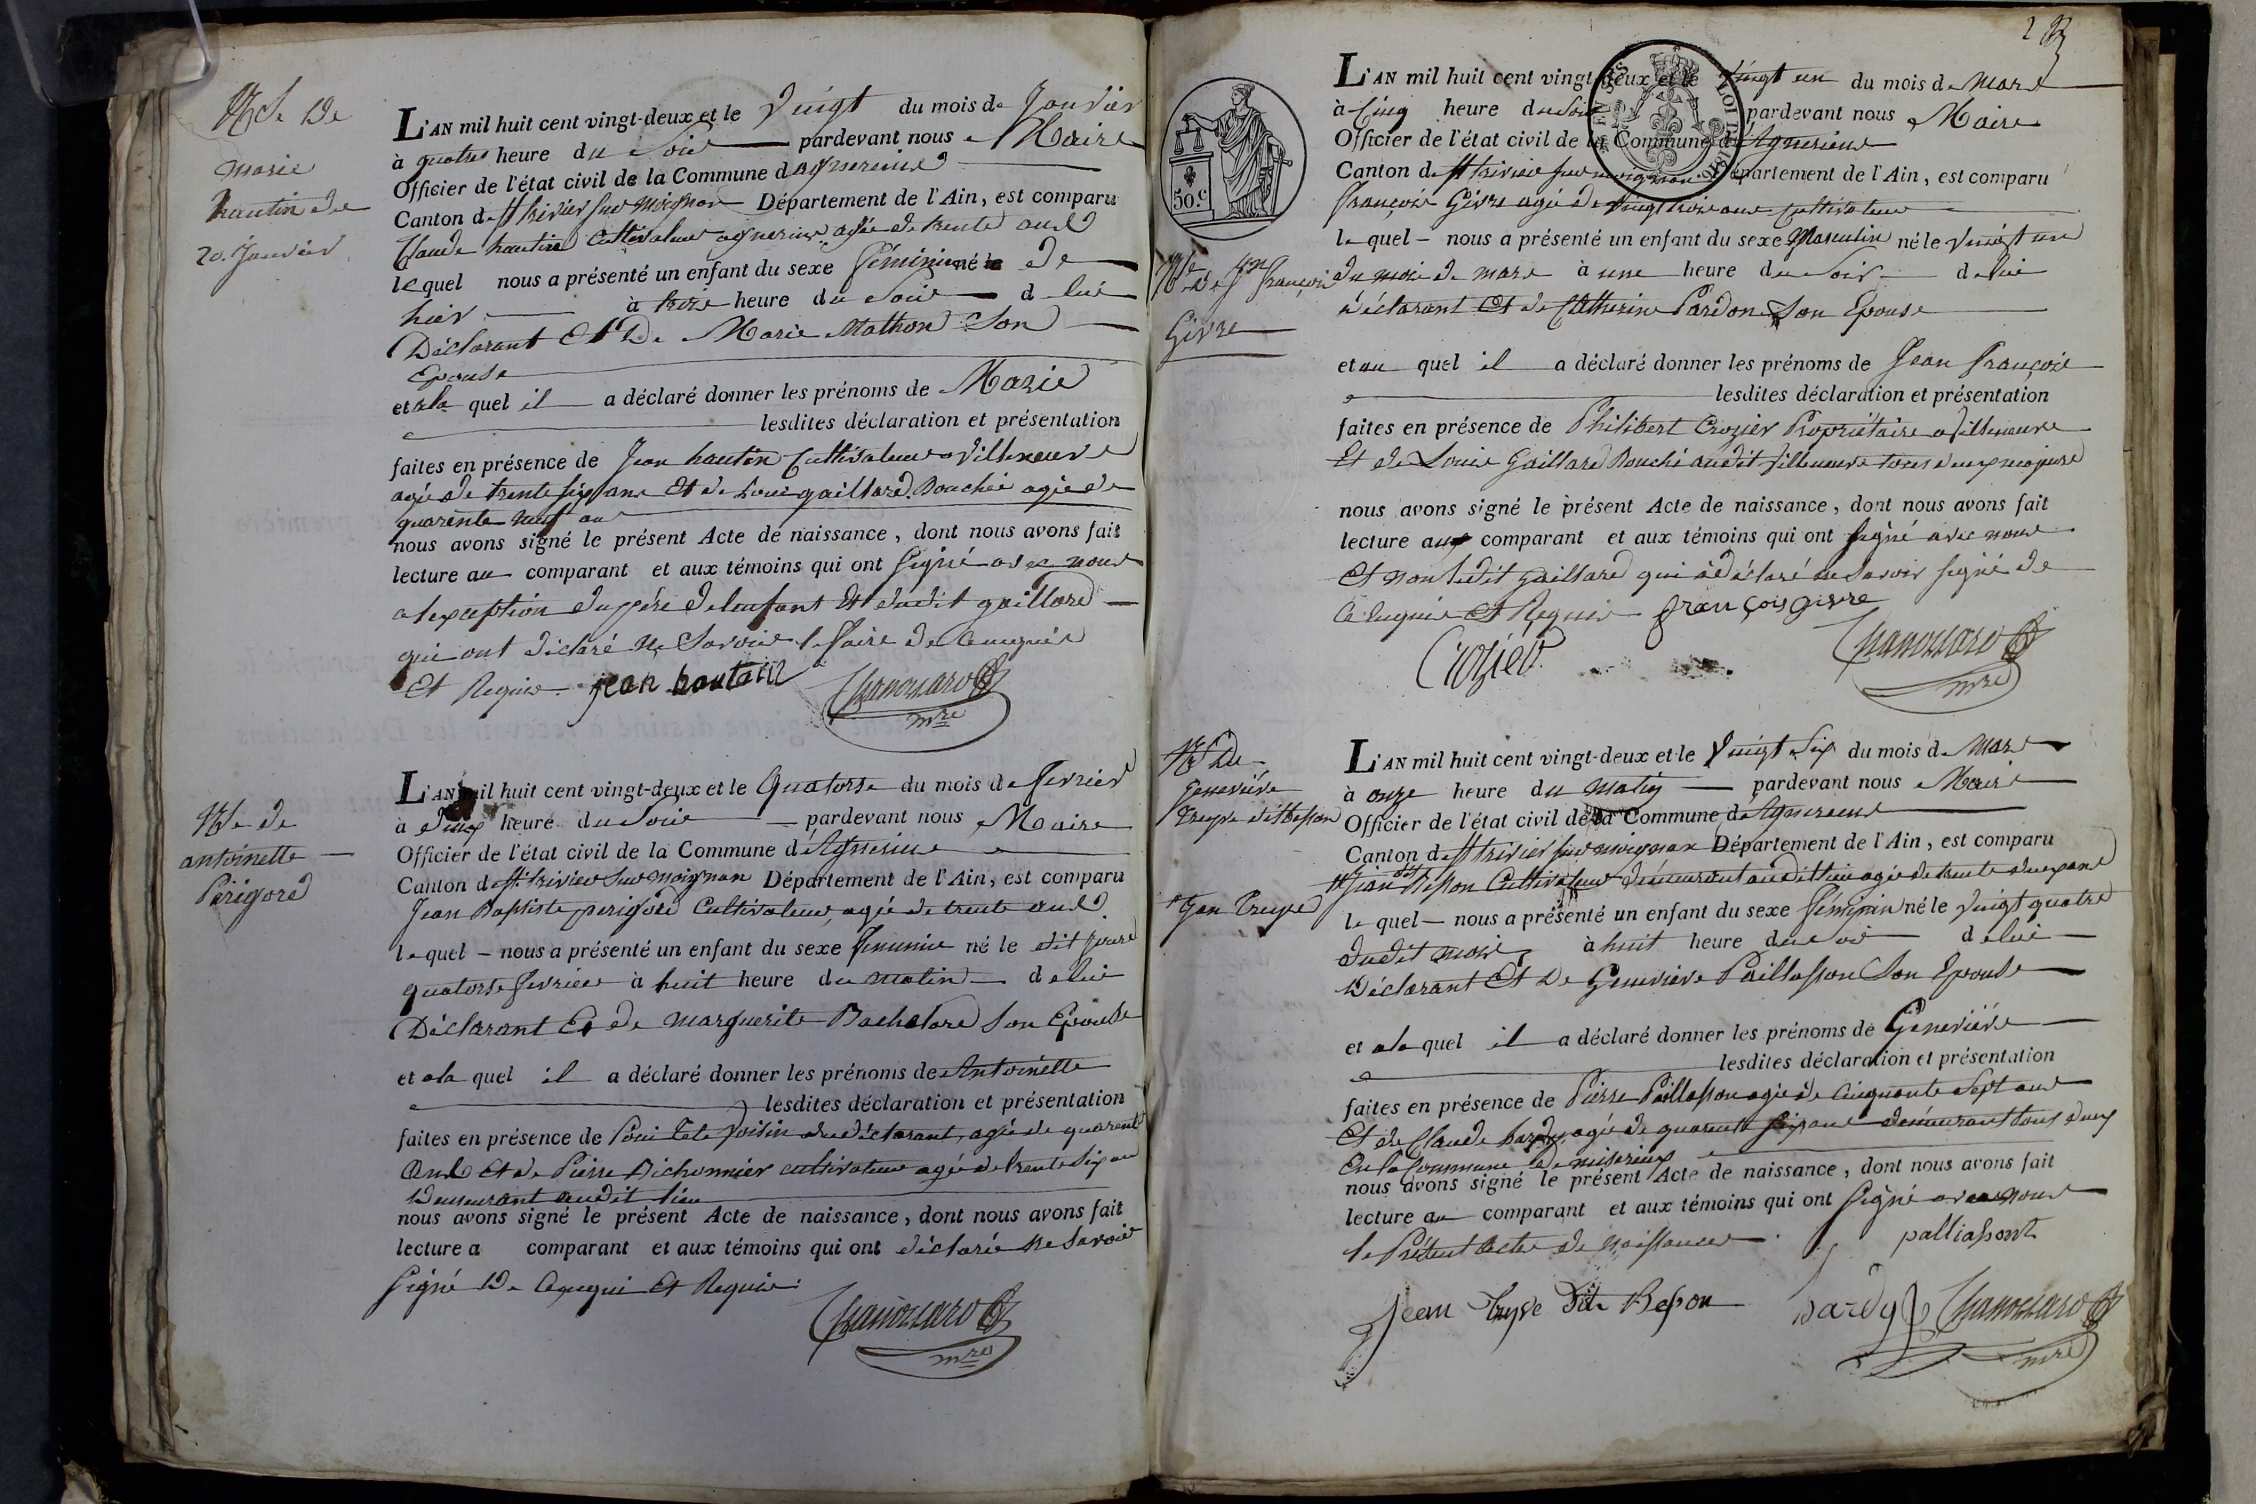 Nce De
marie
hautin du
20. Janvier
L'AN mil huit cent vingt-deux et le vingt du mois de Janvier
à quatre heure du Soir pardevant nous Maire
Officier de l'état civil de la Commune d'agnereins
Canton de St trivier sur moignan Département de l'Ain, est comparu
Claude hautin Cultivateur agnereins agée de trente ans
lequel nous a présenté un enfant du sexe féminin né le de
hier à trois heure du Soir de lui
Déclarant Et De Marie Mathon Son
Epouse
et a la quel il a déclaré donner les prénoms de Marie
lesdites déclaration et présentation
faites en présence de Jean hautin Cultivateur a Villeneuve
agée de trente six ans Et de Louis gaillard Bouché agée de
quarente neuf ans
nous avons signé le présent Acte de naissance, dont nous avons fait
lecture au comparant et aux témoins qui ont Signé avec nous
a lexception du père de lenfant Et dudit gaillard
qui ont déclaré Ne Savoir le faire de ce enquis
Et Requis jean hautain
Chanossard
mre
Nce de
antoinette
Périgord
L'AN mil huit cent vingt-deux et le Quatorse du mois de fevrier
à deux heure du Soir pardevant nous Maire
Officier de l'état civil de la Commune d'Agnereins
Canton de St. trivier Sur moignan Département de l'Ain, est comparu
Jean Baptiste perigord Cultivateur, agée de trente ans
lequel nous a présenté un enfant du sexe feminin né le dit jours
quatorse fevrier à huit heure du matin de lui
Déclarant Et de Marguerite Bachelard Son Epouse
et a la quel il a déclaré donner les prénoms de Antoinette
lesdites déclaration et présentation
faites en présence de Louis Tete voisin du déclarant, agée de quarente
Ans Et de Pierre Dichonnier cultivateur agée de trente six an
Demeurant audit lieu
nous avons signé le présent Acte de naissance, dont nous avons fait
lecture a comparant et aux témoins qui ont déclarée Ne Savoir
Signé De Ce enqui Et Requis.
Chanossard
mre
50.c
Nce de Jn
françois
Givre
L'AN mil huit cent vingt-deux et le vingt un du mois de Mars
à Cinq heure du Soir pardevant nous Maire
Officier de l'état civil de la Commune d'Agnereins
Canton de St trivier sur moignan Département de l'Ain, est comparu
François Givre agé de vingt trois ans Cultivateur
lequel nous a présenté un enfant du sexe Masculin né le vingt un
du mois de mars à une heure du Soir de lui
Déclarant Et de Catherine Pardon Son Epouse
et au quel il a déclaré donner les prénoms de Jean François
lesdites déclaration et présentation
faites en présence de Philibert Crozier Propriétaire a Villeneuve
Et de Louis Gaillard Bouché audit Villeneuve tous deux majeurs
nous avons signé le présent Acte de naissance, dont nous avons fait
lecture aux comparant et aux témoins qui ont Signé avec nous
Et non ledit Gaillard qui a déclaré ne Savoir Signé de
Ce enquis Et Requis françois givre
Crozier
Chanossard
mre
Nce De
Genevieve
Treyve dit Besson
Jean Treyve
L'AN mil huit cent vingt-deux et le vingt Six du mois de Mars
à onze heure du Matin pardevant nous Maire
Officier de l'état civil de la Commune d'Agnereins
Canton de St trivier sur moignan Département de l'Ain, est comparu
Jean dit Besson Cultivateur Demeurant audit lieu agée de trente deux ans
lequel nous a présenté un enfant du sexe féminin né le vingt quatre
dudit mois à huit heure du Soir de lui
Déclarant Et De Genevieve Paillasson Son Epouse
et a la quel il a déclaré donner les prénoms de Genevieve
lesdites déclaration et présentation
faites en présence de Pierre Paillasson agée de Cinquante Sept ans
Et de Claude bardy agée de quarente six ans demeurant tous deux
En la Commune de miserieux
nous avons signé le présent Acte de naissance, dont nous avons fait
lecture au comparant et aux témoins qui ont Signé avec nous
le Présent Acte de Naissance
palliasont
Jean treyve dit Beson
bardy
Chanossard
mre